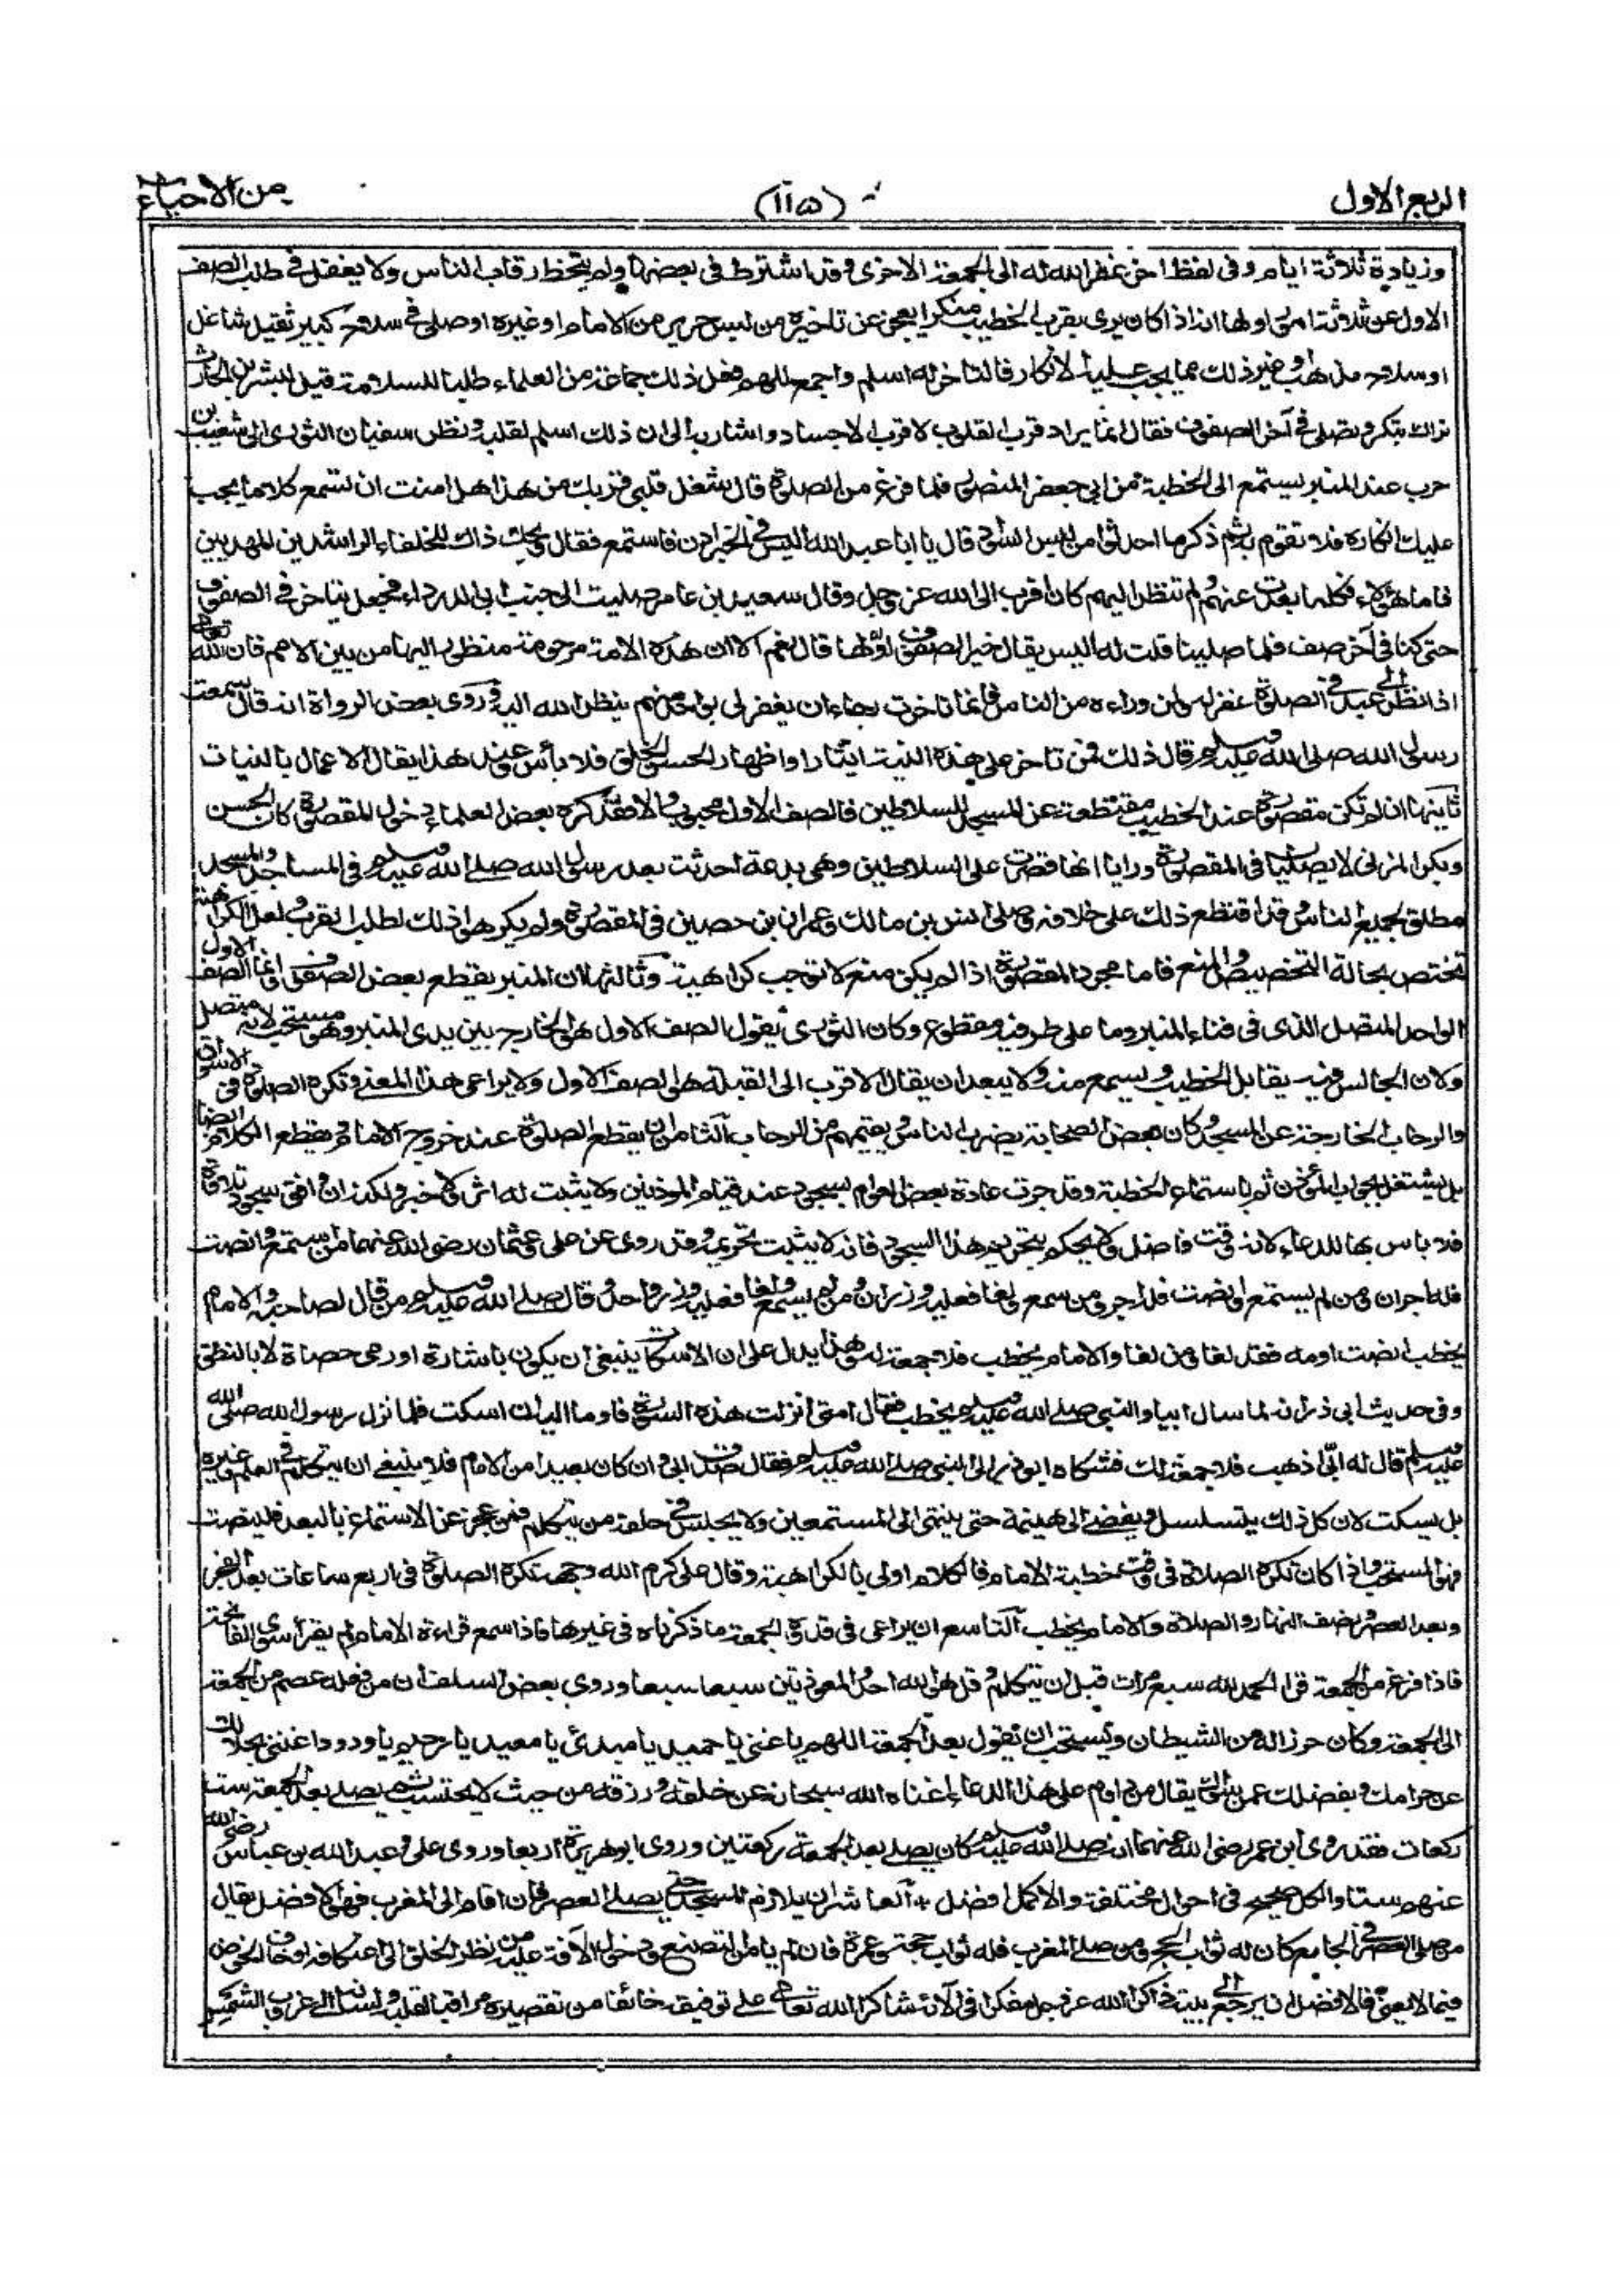 الربع الاول
(١١٥)
من الاحياء
وزيادة ثلاثة ايام وفى لفظ اخر غفر الله له الى الجمعة الاخرى وقد اشترط فى بعضها ولم يتخط رقاب الناس ولا يغفل فى طلب الصف
الاول عن ثلاثة امور اولها انه اذا كان يرى بقرب الخطيب منكرا يعجز عن تاخيره من لبس حرير من الامام او غيره او صلى فى سلاح كبير ثقيل شاغل
او سلاح مذهب وغير ذلك مما يجب عليه الانكار فالتاخر له اسلم واجمع للهم فعل ذلك جماعة من العلماء طلبا للسلامة قيل لبشر بن الحارث
نراك تبكر وتصلى فى آخر الصفوف فقال انما يراد قرب القلوب لا قرب الاجساد واشار به الى ان ذلك اسلم لقلبه ونظر سفيان الثورى الى شعيب بن
حرب عند المنبر يستمع الى الخطبة من ابى جعفر المنصور فلما فرغ من الصلوة قال شغل قلبى قربك من هذا هل امنت ان تسمع كلاما يجب
عليك انكاره فلا تقوم به ثم ذكر ما احدثوا من لبس السواد قال يا ابا عبد الله اليس فى الخبر ادن فاستمع فقال ويحك ذاك للخلفاء الراشدين المهديين
فاما هؤلاء فكلما بعدت عنهم ولم تنظر اليهم كان اقرب الى الله عز وجل وقال سعيد بن عامر صليت الى جنب ابى الدرداء فجعل يتاخر فى الصفوف
حتى كنا فى آخر صف فلما صلينا قلت له اليس يقال خير الصفوف اولها قال نعم الا ان هذه الامة مرحومة منظور اليها من بين الامم فان الله تعالى
اذا نظر الى عبد فى الصلوة غفر له ولمن وراءه من الناس فانما تاخرت رجاء ان يغفر لى بواحد منهم ينظر الله اليه وروى بعض الرواة انه قال سمعت
رسول الله صلى الله عليه وسلم قال ذلك فمن تاخر على هذه النية ايثارا واظهارا لحسن الخلق فلا بأس وعند هذا يقال الاعمال بالنيات
ثانيها ان لم تكن مقصورة عند الخطيب مقتطعة عن المسجد للسلاطين فالصف الاول محبوب والا فقد كره بعض العلماء دخول المقصورة كان الحسن
وبكر المزنى لا يصليان فى المقصورة ورايا انها قصرت على السلاطين وهى بدعة احدثت بعد رسول الله صلى الله عليه وسلم فى المساجد والمسجد
مطلق لجميع الناس وقد اقتطع ذلك على خلافه وصلى انس بن مالك وعمران بن حصين فى المقصورة ولم يكرها ذلك لطلب القرب ولعل الكراهية
تختص بحالة التخصيص والمنع فاما مجرد المقصورة اذا لم يكن منع لا توجب كراهية وثالثها ان المنبر يقطع بعض الصفوف وانما الصف الاول
الواحد المتصل الذى فى فناء المنبر وما على طرفيه مقطوع وكان الثورى يقول الصف الاول هو الخارج بين يدى المنبر وهو مستحب لانه متصل
ولان الجالس فيه يقابل الخطيب ويسمع منه ولا يبعد ان يقال الاقرب الى القبلة هو الصف الاول ولا يراعى هذا المعنى وتكره الصلوة فى الاسواق
والرحاب الخارجة عن المسجد وكان بعض الصحابة يضرب الناس ويقيمهم من الرحاب الثامن ان يقطع الصلوة عند خروج الامام ويقطع الكلام ايضا
بل يشتغل بجواب المؤذن ثم باستماع الخطبة وقد جرت عادة بعض العوام بسجود عند قيام المؤذنين ولا يثبت له اثر ولا خبر ولكنه ان وافق سجود تلاوة
فلا باس بها للدعاء لانه وقت فاضل ولا يحكم بتحريم هذا السجود فانه لا يثبت تحريمه وقد روى عن على وعثمان رضى الله عنهما من استمع وانصت
فله اجران ومن لم يستمع وانصت فله اجر ومن سمع ولغا فعليه وزران ومن لم يسمع ولغا فعليه وزر واحد وقال صلى الله عليه وسلم من قال لصاحبه والامام
يخطب انصت او مه فقد لغا ومن لغا والامام يخطب فلا جمعة له وهذا يدل على ان الاسكات ينبغى ان يكون باشارة او رمى حصاة لا بالنطق
وفى حديث ابى ذر انه لما سال ابيا والنبى صلى الله عليه وسلم يخطب فقال متى انزلت هذه السورة فاوما اليه ان اسكت فلما نزل رسول الله صلى الله
عليه وسلم قال له ابىّ اذهب فلا جمعة لك فشكاه ابو ذر الى النبى صلى الله عليه وسلم فقال صدق ابى وان كان بعيدا من الامام فلا ينبغى ان يتكلم فى العلم وغيره
بل يسكت لان كل ذلك يتسلسل ويفضى الى هينمة حتى ينتهى الى المستمعين ولا يجلس فى حلقة من يتكلم فمن عجز عن الاستماع بالبعد فلينصت
فهو المستحب واذا كان تكره الصلاة فى وقت خطبة الامام فالكلام اولى بالكراهية وقال على كرم الله وجهه تكره الصلوة فى اربع ساعات بعد الفجر
وبعد العصر ونصف النهار والصلاة والامام يخطب التاسع ان يراعى فى قدوة الجمعة ما ذكرناه فى غيرها فاذا سمع قراءة الامام لم يقرأ سوى الفاتحة
فاذا فرغ من الجمعة قرأ الحمد لله سبع مرات قبل ان يتكلم وقل هو الله احد والمعوذتين سبعا سبعا وروى بعض السلف ان من فعله عصم من الجمعة
الى الجمعة وكان حرزا له من الشيطان ويستحب ان تقول بعد الجمعة اللهم يا غنى يا حميد يا مبدئ يا معيد يا رحيم يا ودود اغننى بحلالك
عن حرامك وبفضلك عمن سواك يقال من داوم على هذا الدعاء اغناه الله سبحانه عن خلقه ورزقه من حيث لا يحتسب ثم يصلى بعد الجمعة ست
ركعات فقد روى ابن عمر رضى الله عنهما انه صلى الله عليه وسلم كان يصلى بعد الجمعة ركعتين وروى ابو هريرة اربعا وروى على وعبد الله بن عباس رضى الله
عنهم ستا والكل صحيح فى احوال مختلفة والاكمل افضل * العاشر ان يلازم المسجد حتى يصلى العصر فان اقام الى المغرب فهو الافضل يقال
من صلى العصر فى الجامع كان له ثواب الحج ومن صلى المغرب فله ثواب حجة وعمرة فان لم يامن التصنع ودخول الآفة عليه من نظر الخلق الى اعتكافه او خاف الخوض
فيما لا يعنى فالافضل ان يرجع الى بيته ذاكرا الله عز وجل مفكرا فى آلائه شاكرا الله تعالى على توفيقه خائفا من تقصيره مراقبا لقلبه ولسانه الى غروب الشمس